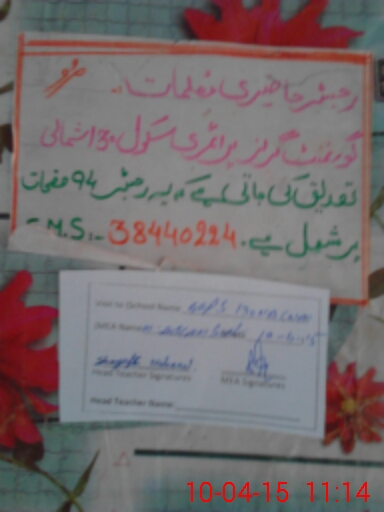 رجسٹر حاضری معلمات
گورنمنٹ گرلز پرائمری سکول
تصدیق کی جاتی ہے کہ یہ رجسٹر 94 صفحات
پر شمل ہے۔ M.S:- 38440224
Visit to School Name: GGPS
(MEA Name:
Head Teacher Signatures
MEA Signatures
Head Teacher Name:
10-04-15 11:14